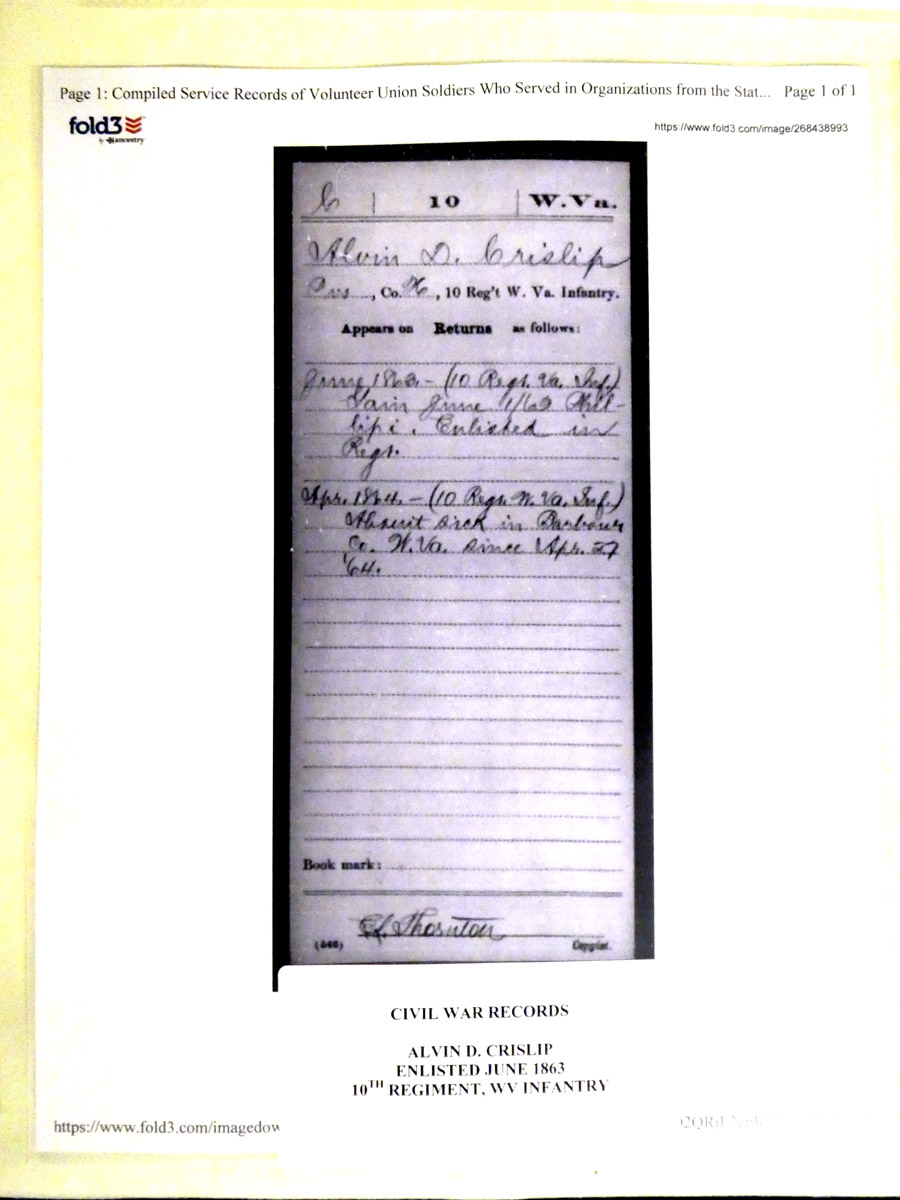 Page 1: Compiled Service Records of Volunteer Union Soldiers Who Served in Organizations from the Stat... Page 1 of 1
fold3
by ancestry
https://www.fold3.com/image/268438993
C | 10 | W.Va.
Alvin D. Crislip
Pvt, Co. H, 10 Reg't W. Va. Infantry.
Appears on Returns as follows:
June 1862 - (10 Regt. Va. Inf.)
Gain June 1/62 Phil-
lipi. Enlisted in
Regt.
Apr. 1864. - (10 Regt. W. Va. Inf.)
Absent sick in Barbour
Co. W. Va. since Apr. 27
'64.
Book mark:
Thornton
(546) Copyist.
CIVIL WAR RECORDS
ALVIN D. CRISLIP
ENLISTED JUNE 1863
10TH REGIMENT, WV INFANTRY
https://www.fold3.com/imagedow